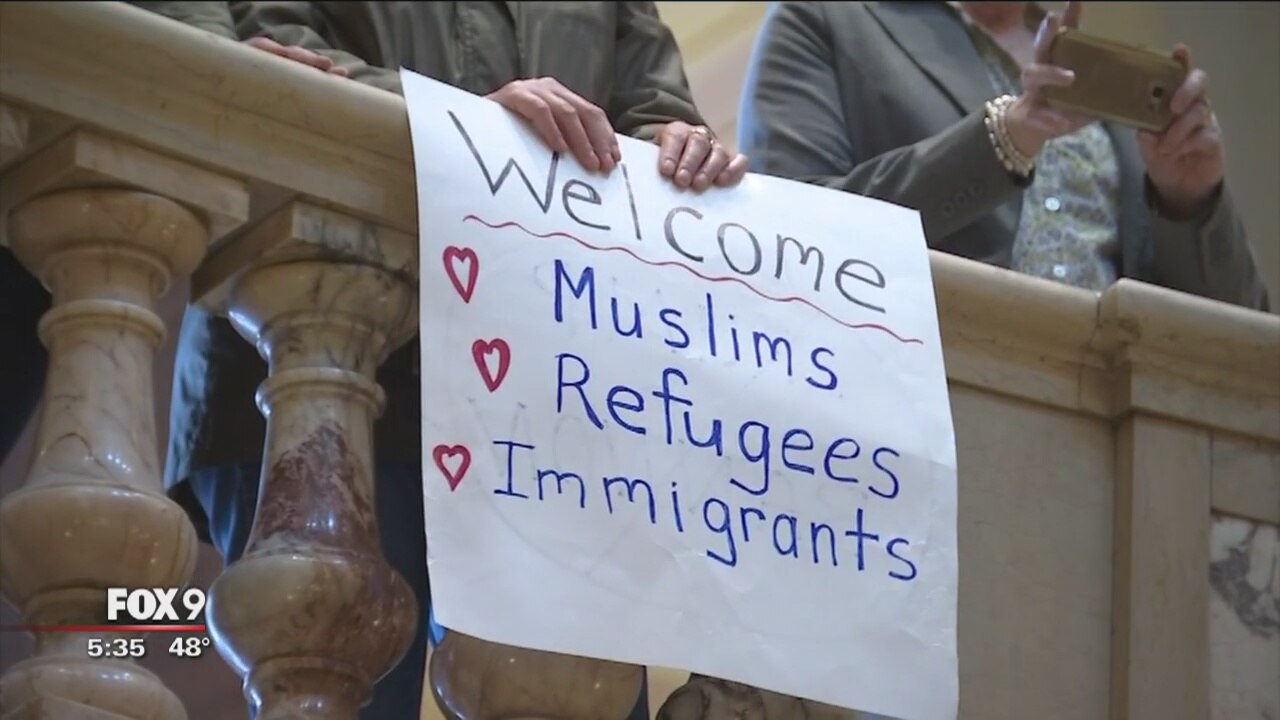 Welcome
Muslims
Refugees
Immigrants
FOX 9
5:35 48°